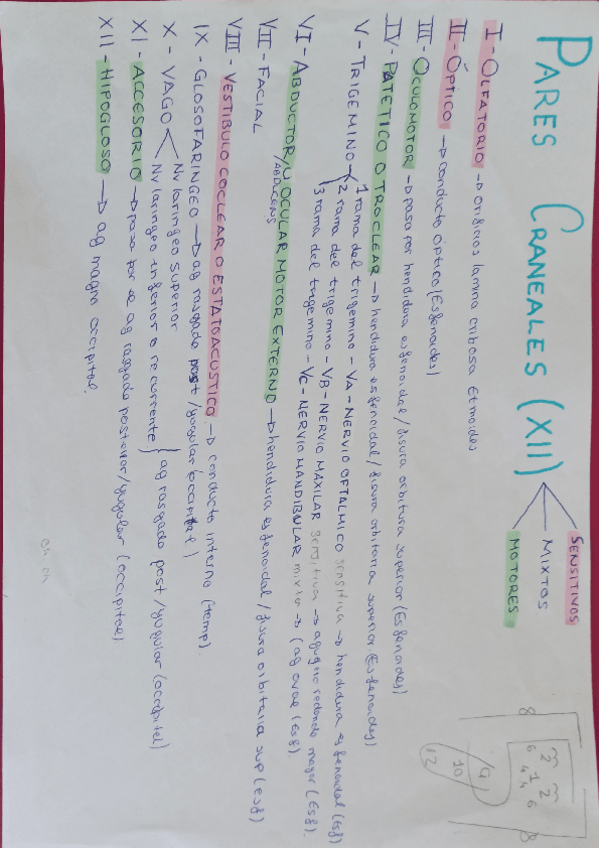 PARES CRANEALES (XII)
SENSITIVOS
MIXTOS
MOTORES
I - OLFATORIO → orificios lamina cribosa Etmoides
II - ÓPTICO → conducto óptico (Esfenoides)
III - OCULOMOTOR → pasa por hendidura esfenoidal / fisura orbitaria superior (Esfenoides)
IV - PATETICO O TROCLEAR → hendidura esfenoidal / fisura orbitaria superior (Esfenoides)
V - TRIGEMINO
1 rama del trigemino - VA - NERVIO OFTALMICO sensitiva → hendidura esfenoidal (Esf)
2 rama del trigemino - VB - NERVIO MAXILAR sensitiva → agujero redondo mayor (Esf).
3 rama del trigemino - VC - NERVIO MANDIBULAR mixta → (ag oval (Esf).
VI - ABDUCTOR / N. OCULAR MOTOR EXTERNO → hendidura esfenoidal / fisura orbitaria sup (esf)
/ABDUCENS
VII - FACIAL
VIII - VESTIBULO COCLEAR O ESTATOACUSTICO. → conducto interno (temp).
IX - GLOSOFARINGEO → ag rasgado post / yugular (occipital)
X - VAGO
Nv laringeo superior
Nv laringeo inferior o recurrente
ag rasgado post / yugular (occipital)
XI - ACCESORIO → pasa por el ag rasgado posterior / yugular (occipital)
XII - HIPOGLOSO → ag magno occipital.